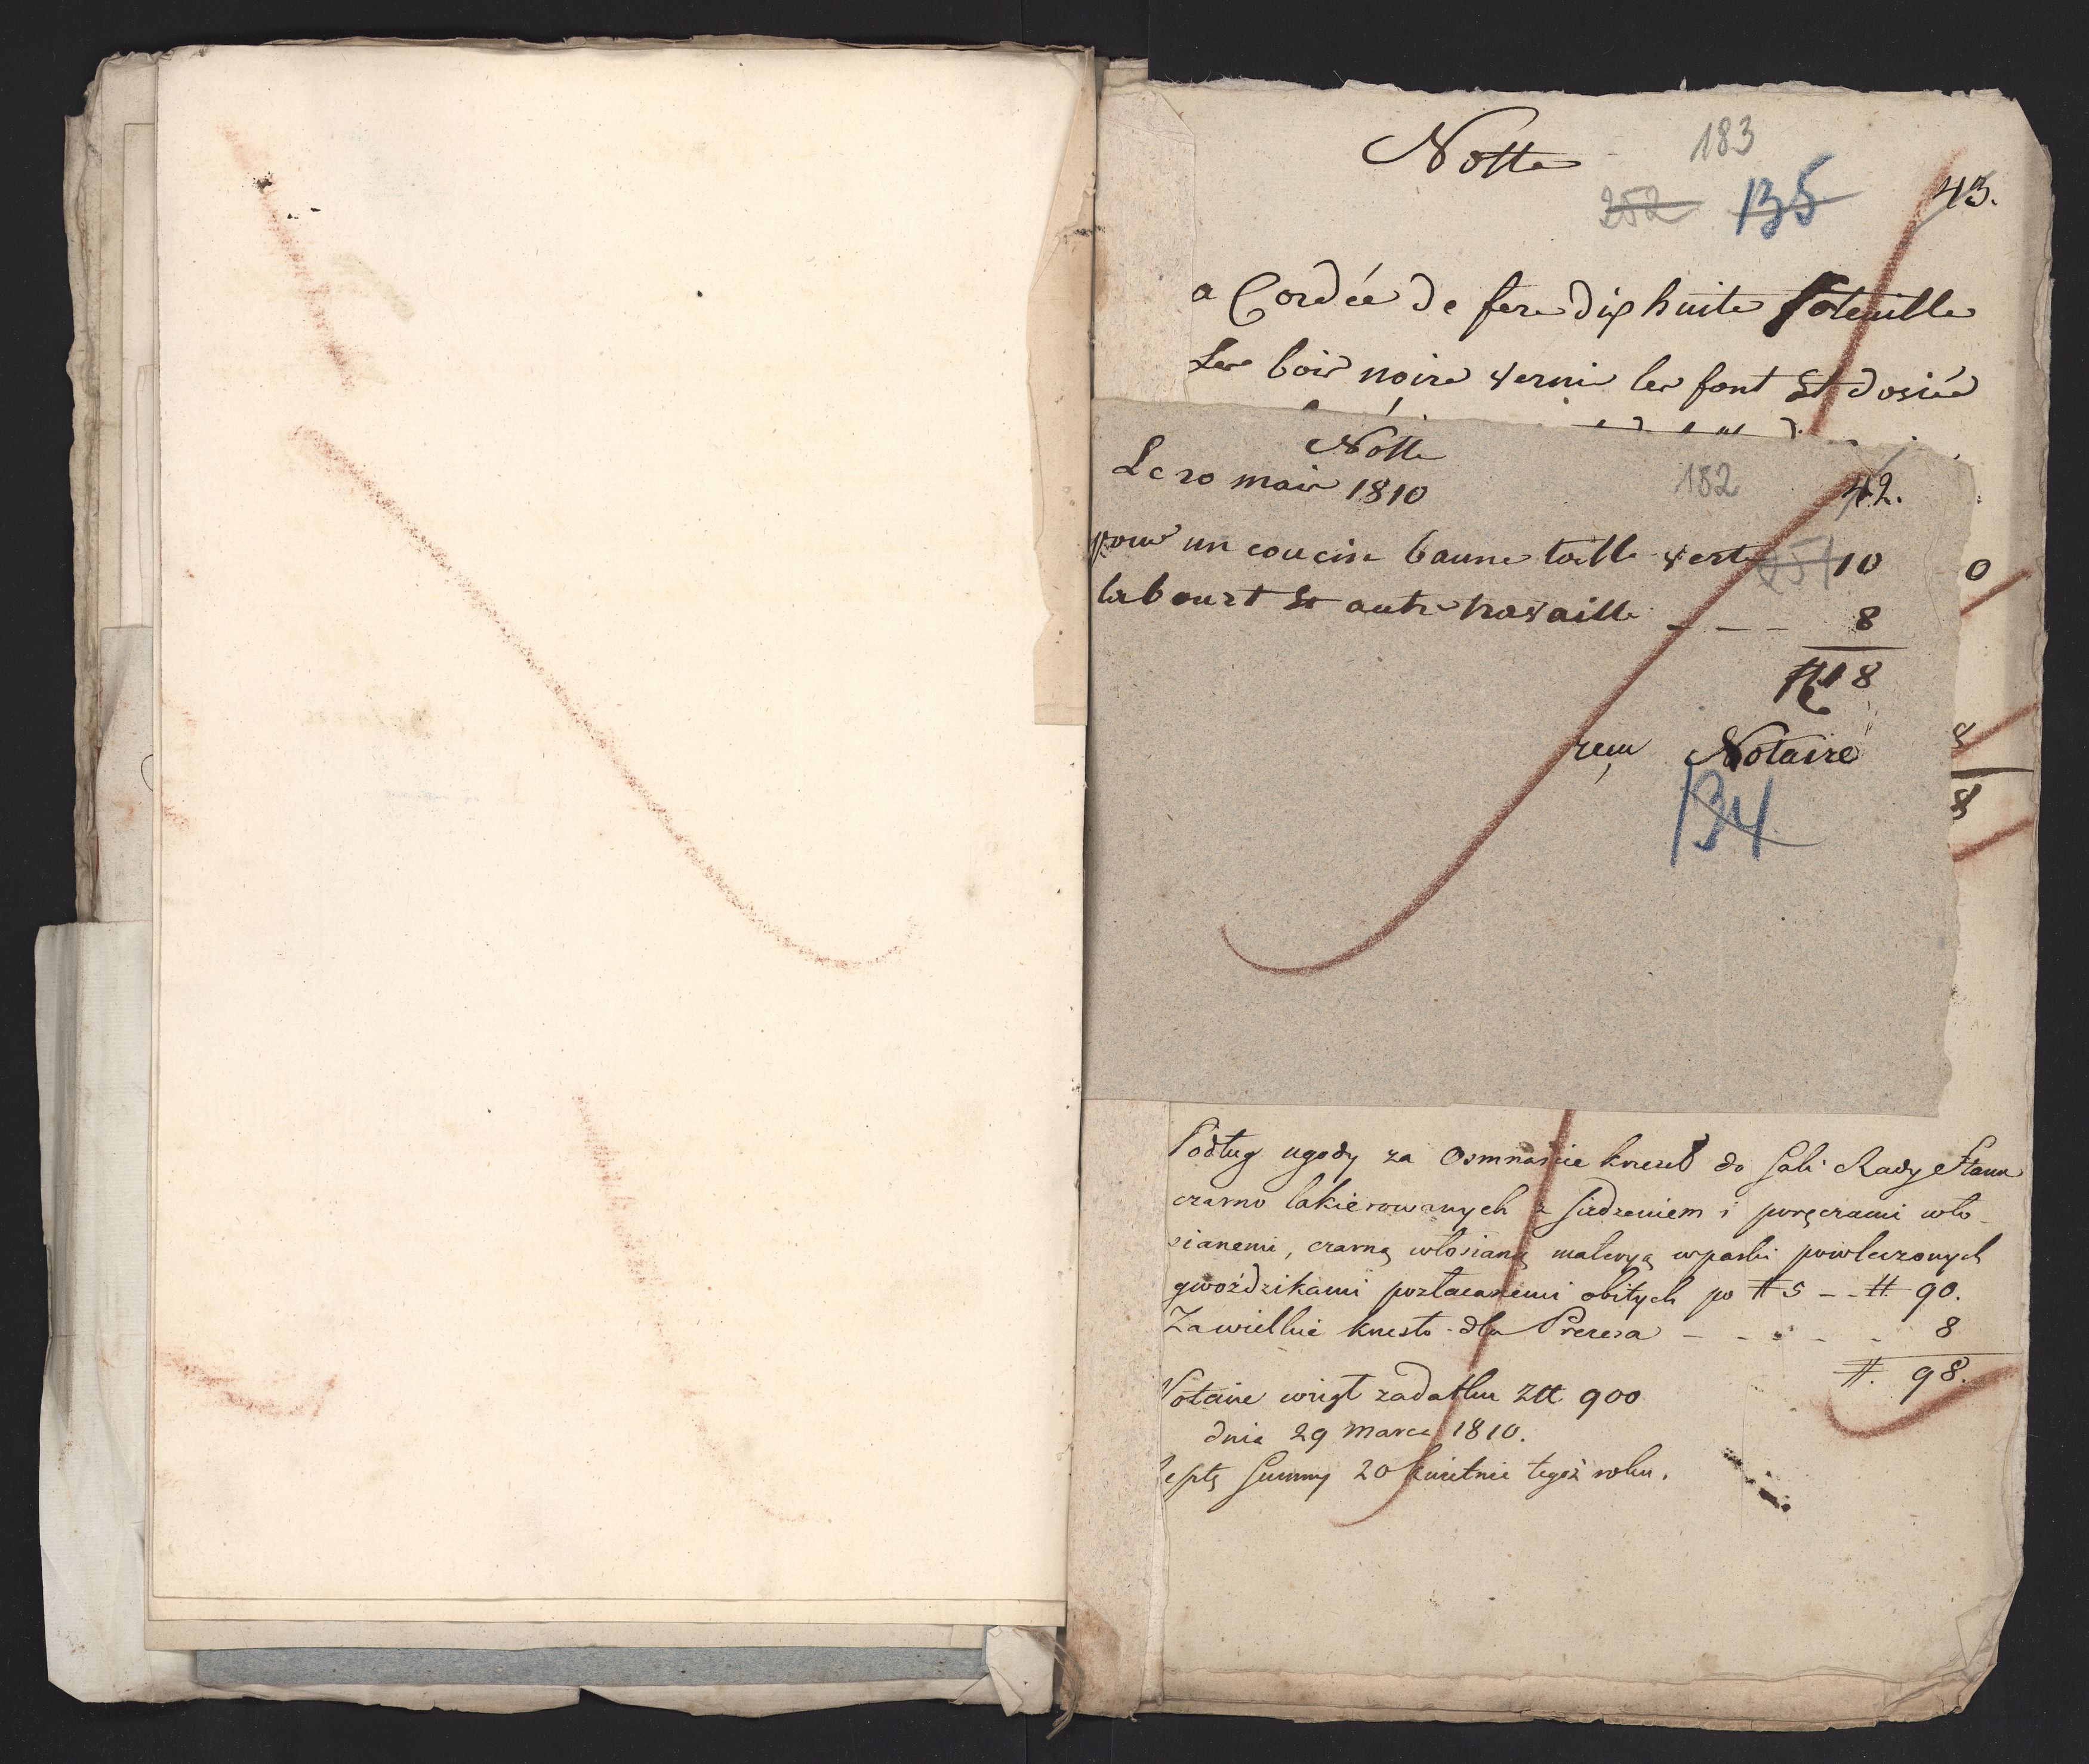 Notte
183
252 135
43.
a Cordée de fere dix huite foteuille
Les bois noire verni les font et dosiée
Notte
Le 20 mais 1810
182
42.
pour un coucin baune toille verte 251 10
la bourt et autre travaille - - - 8
# 18
reçu Notaire
134
0
8
8
Podług ugody za Osmnaście krzeseł do Sali Rady Stanu
czarno lakierowanych z siedzeniem i poręczami wło-
sianemi, czarną włosianą materyą w paski powleczonych
gwoździkami pozłacanemi obitych po # 5 - - # 90.
Za wielkie krzesło dla Prezesa - - - - - 8
# 98.
Notaire wziął zadatku Złt 900
dnia 29 marca 1810.
Resztę Summy 20 kwietnia tegoż roku.